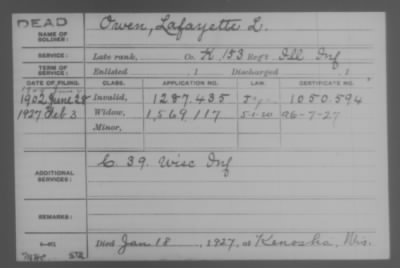 DEAD
NAME OF SOLDIER: Owen, Lafayette L.
SERVICE: Late rank, Co. K, 153 Reg't Ill Inf
TERM OF SERVICE: Enlisted , 1 Discharged , 1
DATE OF FILING. CLASS. APPLICATION NO. LAW. CERTIFICATE NO.
1902 June 28 Invalid, 1287.435 1050.594
1927 Feb 3 Widow, 1,569,117 5-1-20 96-7-27
Minor,
ADDITIONAL SERVICES: C. 39. Wisc Inf
REMARKS:
Died Jan 18, 1927, at Kenosha, Wis.